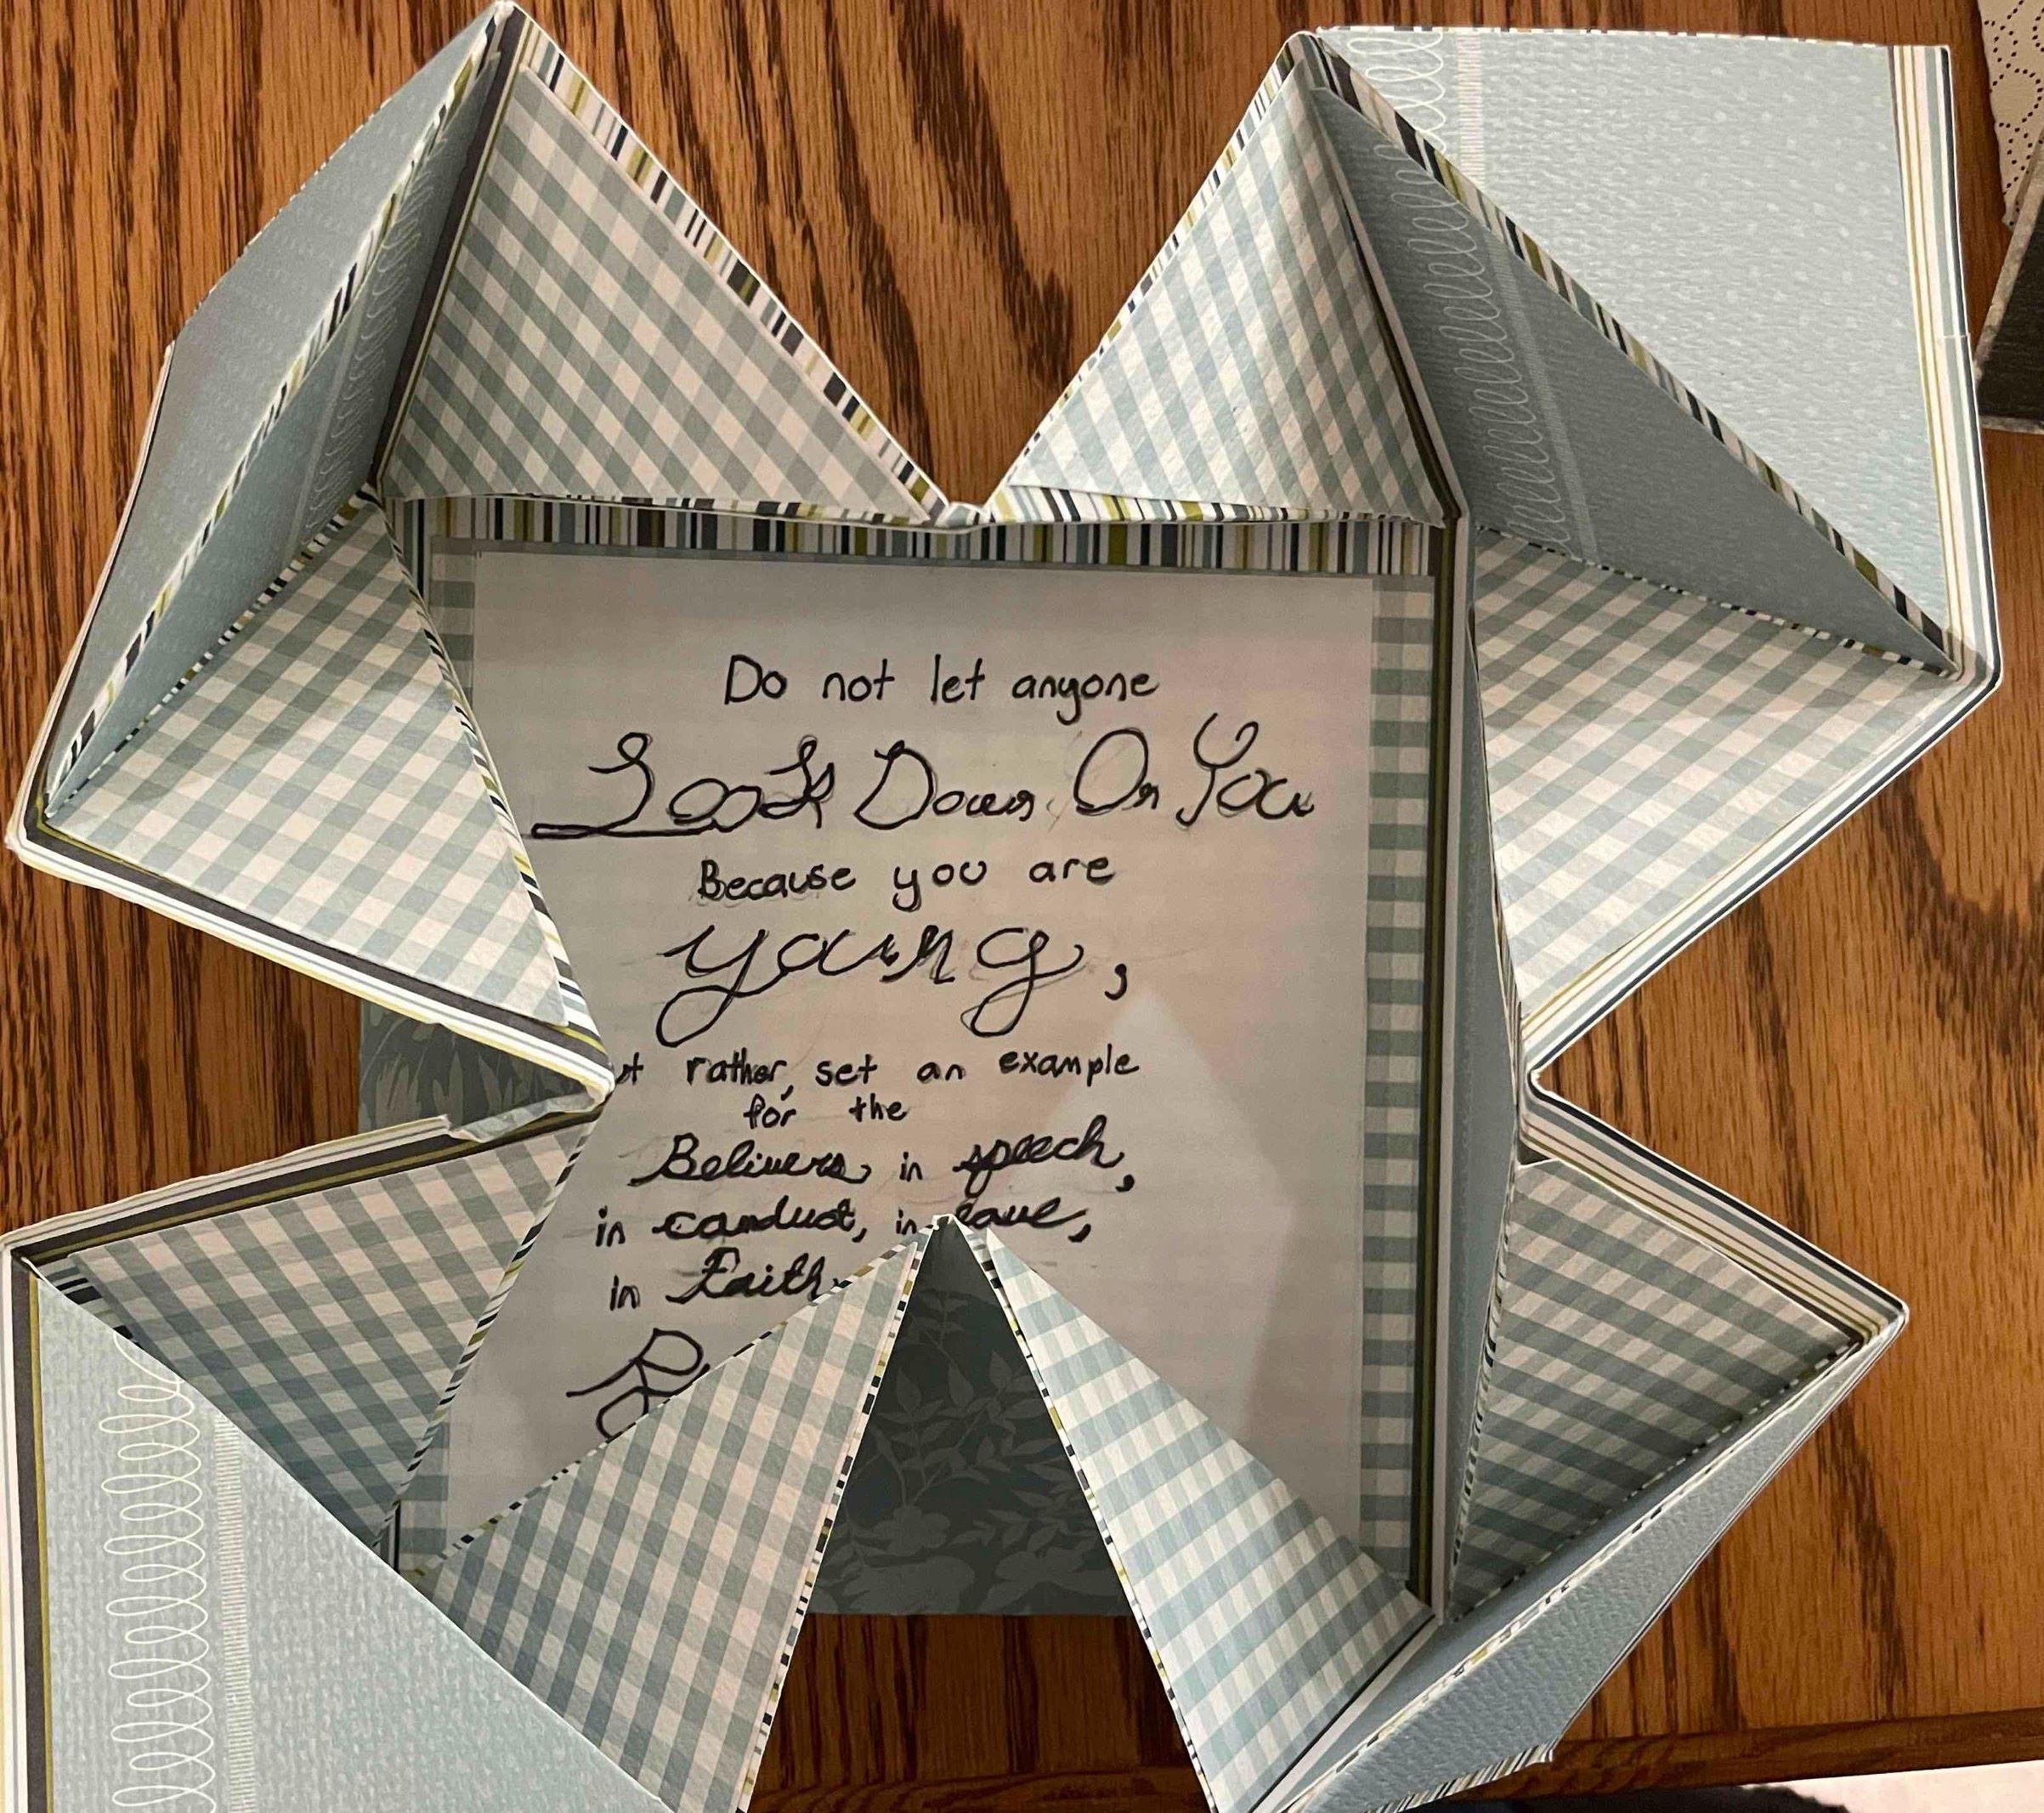 Do not let anyone
Look Down On You
Because you are
young,
rather, set an example
for the
Believers in speech,
in conduct, in love,
in Faith